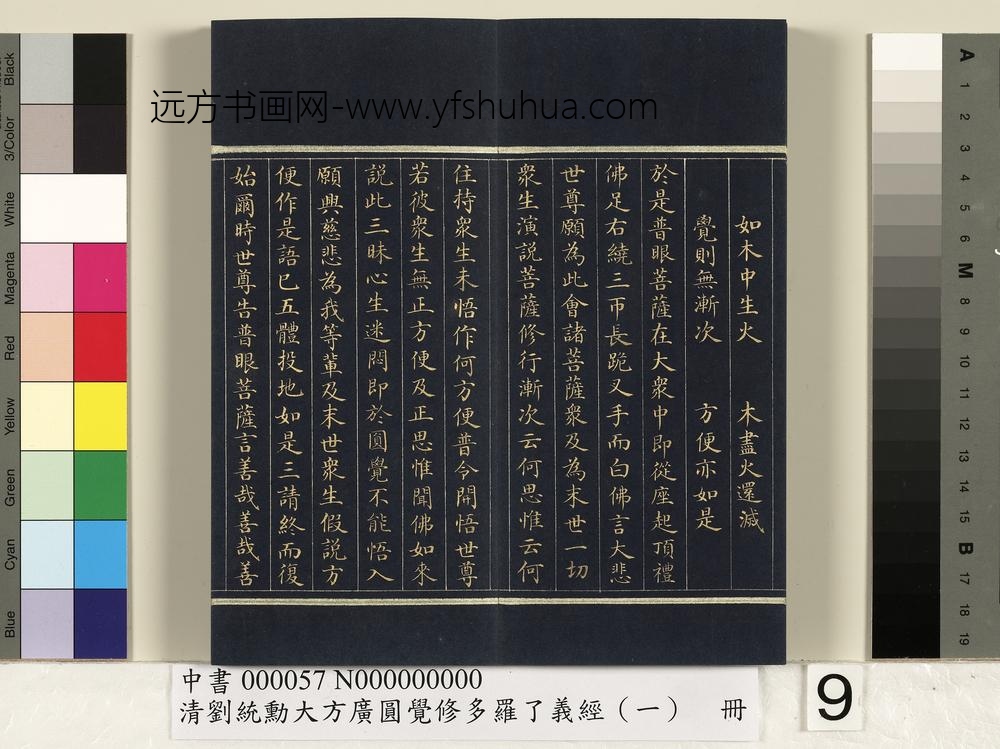 远方书画网-www.yfshuhua.com
如木中生火 木盡火還滅
覺則無漸次 方便亦如是
於是普眼菩薩在大衆中即從座起頂禮
佛足右繞三帀長跪叉手而白佛言大悲
世尊願為此會諸菩薩衆及為末世一切
衆生演説菩薩修行漸次云何思惟云何
住持衆生未悟作何方便普令開悟世尊
若彼衆生無正方便及正思惟聞佛如來
説此三昧心生迷悶即於圓覺不能悟入
願興慈悲為我等輩及末世衆生假説方
便作是語已五體投地如是三請終而復
始爾時世尊告普眼菩薩言善哉善哉善
Black
3/Color
White
Magenta
Red
Yellow
Green
Cyan
Blue
A
1
2
3
4
5
6
M
8
9
10
11
12
13
14
15
B
17
18
19
中書 000057 N000000000
清劉統勳大方廣圓覺修多羅了義經（一） 冊
9